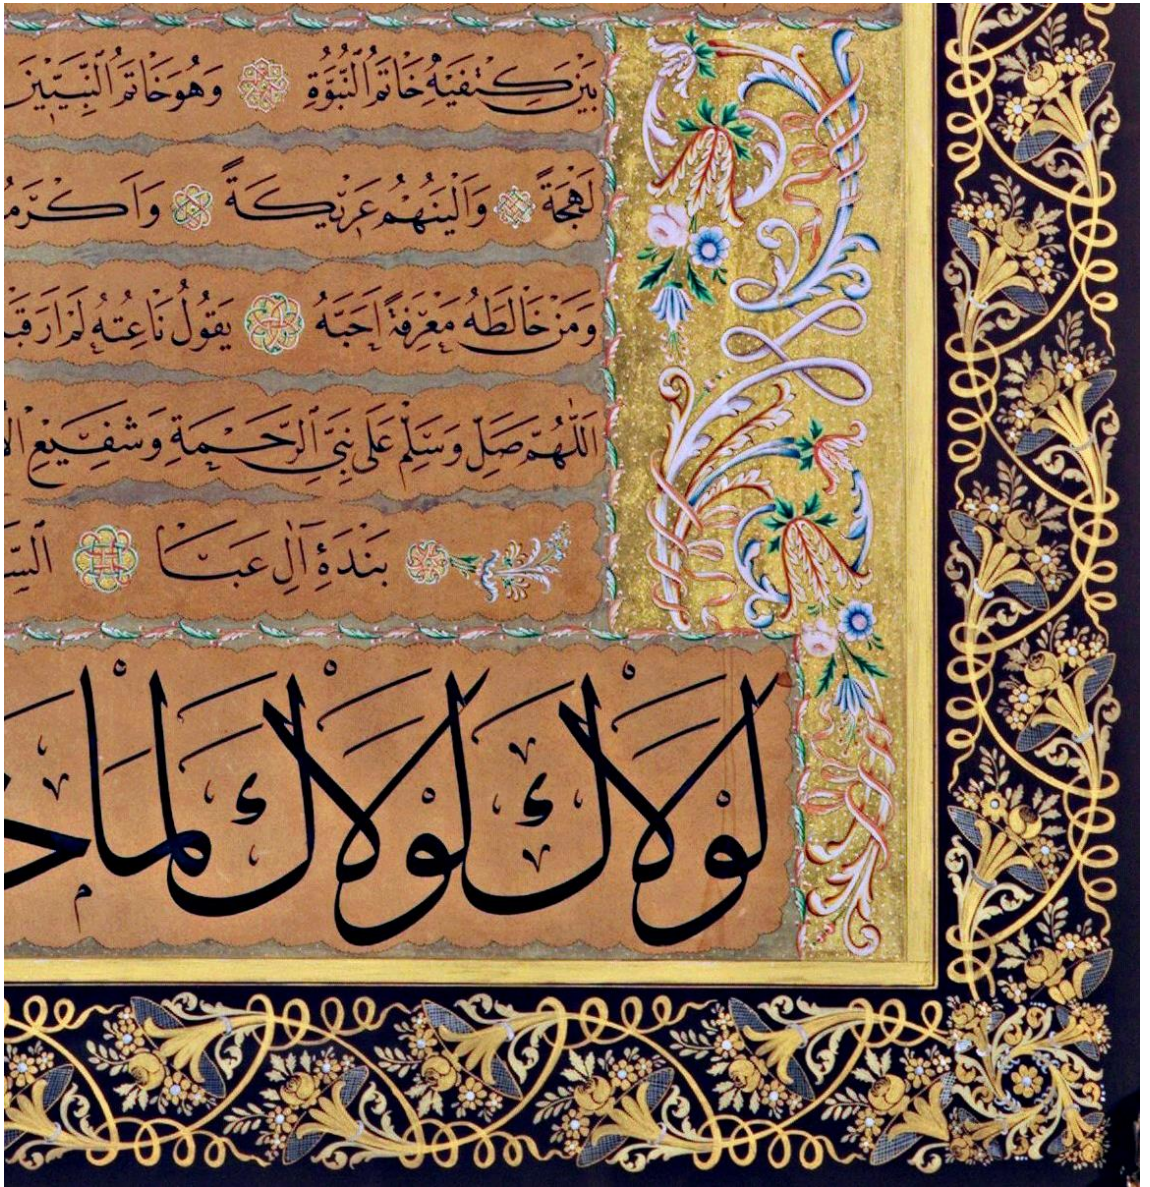 بَيْنَ كَتِفَيْهِ خَاتَمُ النُّبُوَّةِ وَهُوَ خَاتَمُ النَّبِيِّينَ
لَهْجَةً وَاَلْيَنُهُمْ عَرِيكَةً وَاَكْرَمُ
وَمَنْ خَالَطَهُ مَعْرِفَةً اَحَبَّهُ يَقُولُ نَاعِتُهُ لَمْ اَرَ قَبْ
اَللّٰهُمَّ صَلِّ وَسَلِّمْ عَلٰى نَبِيِّ الرَّحْمَةِ وَشَفِيعِ
بَنْدَهِٔ اٰلِ عَبَا
لَوْلَاكَ لَوْلَاكَ لَمَا